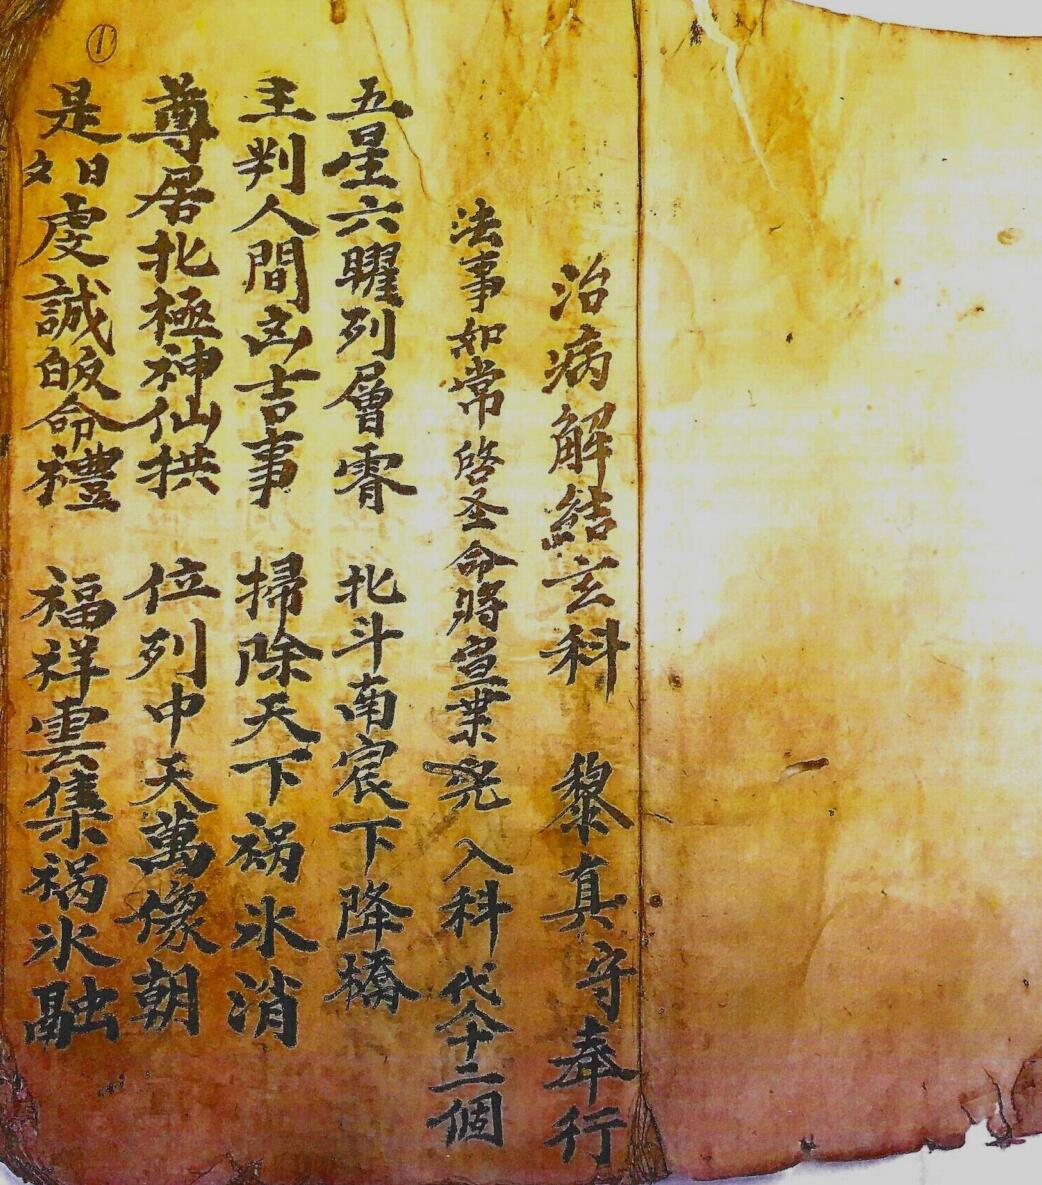 ①
治病解結玄科 黎真守奉行
法事如常啓圣命將宣業完 入科代人十二個
五星六曜列層霄 北斗南宸下降橋
主判人間凶吉事 掃除天下祸氷消
尊居北極神仙拱 位列中天萬像朝
是日虔誠皈命禮 福祥雲集祸氷融